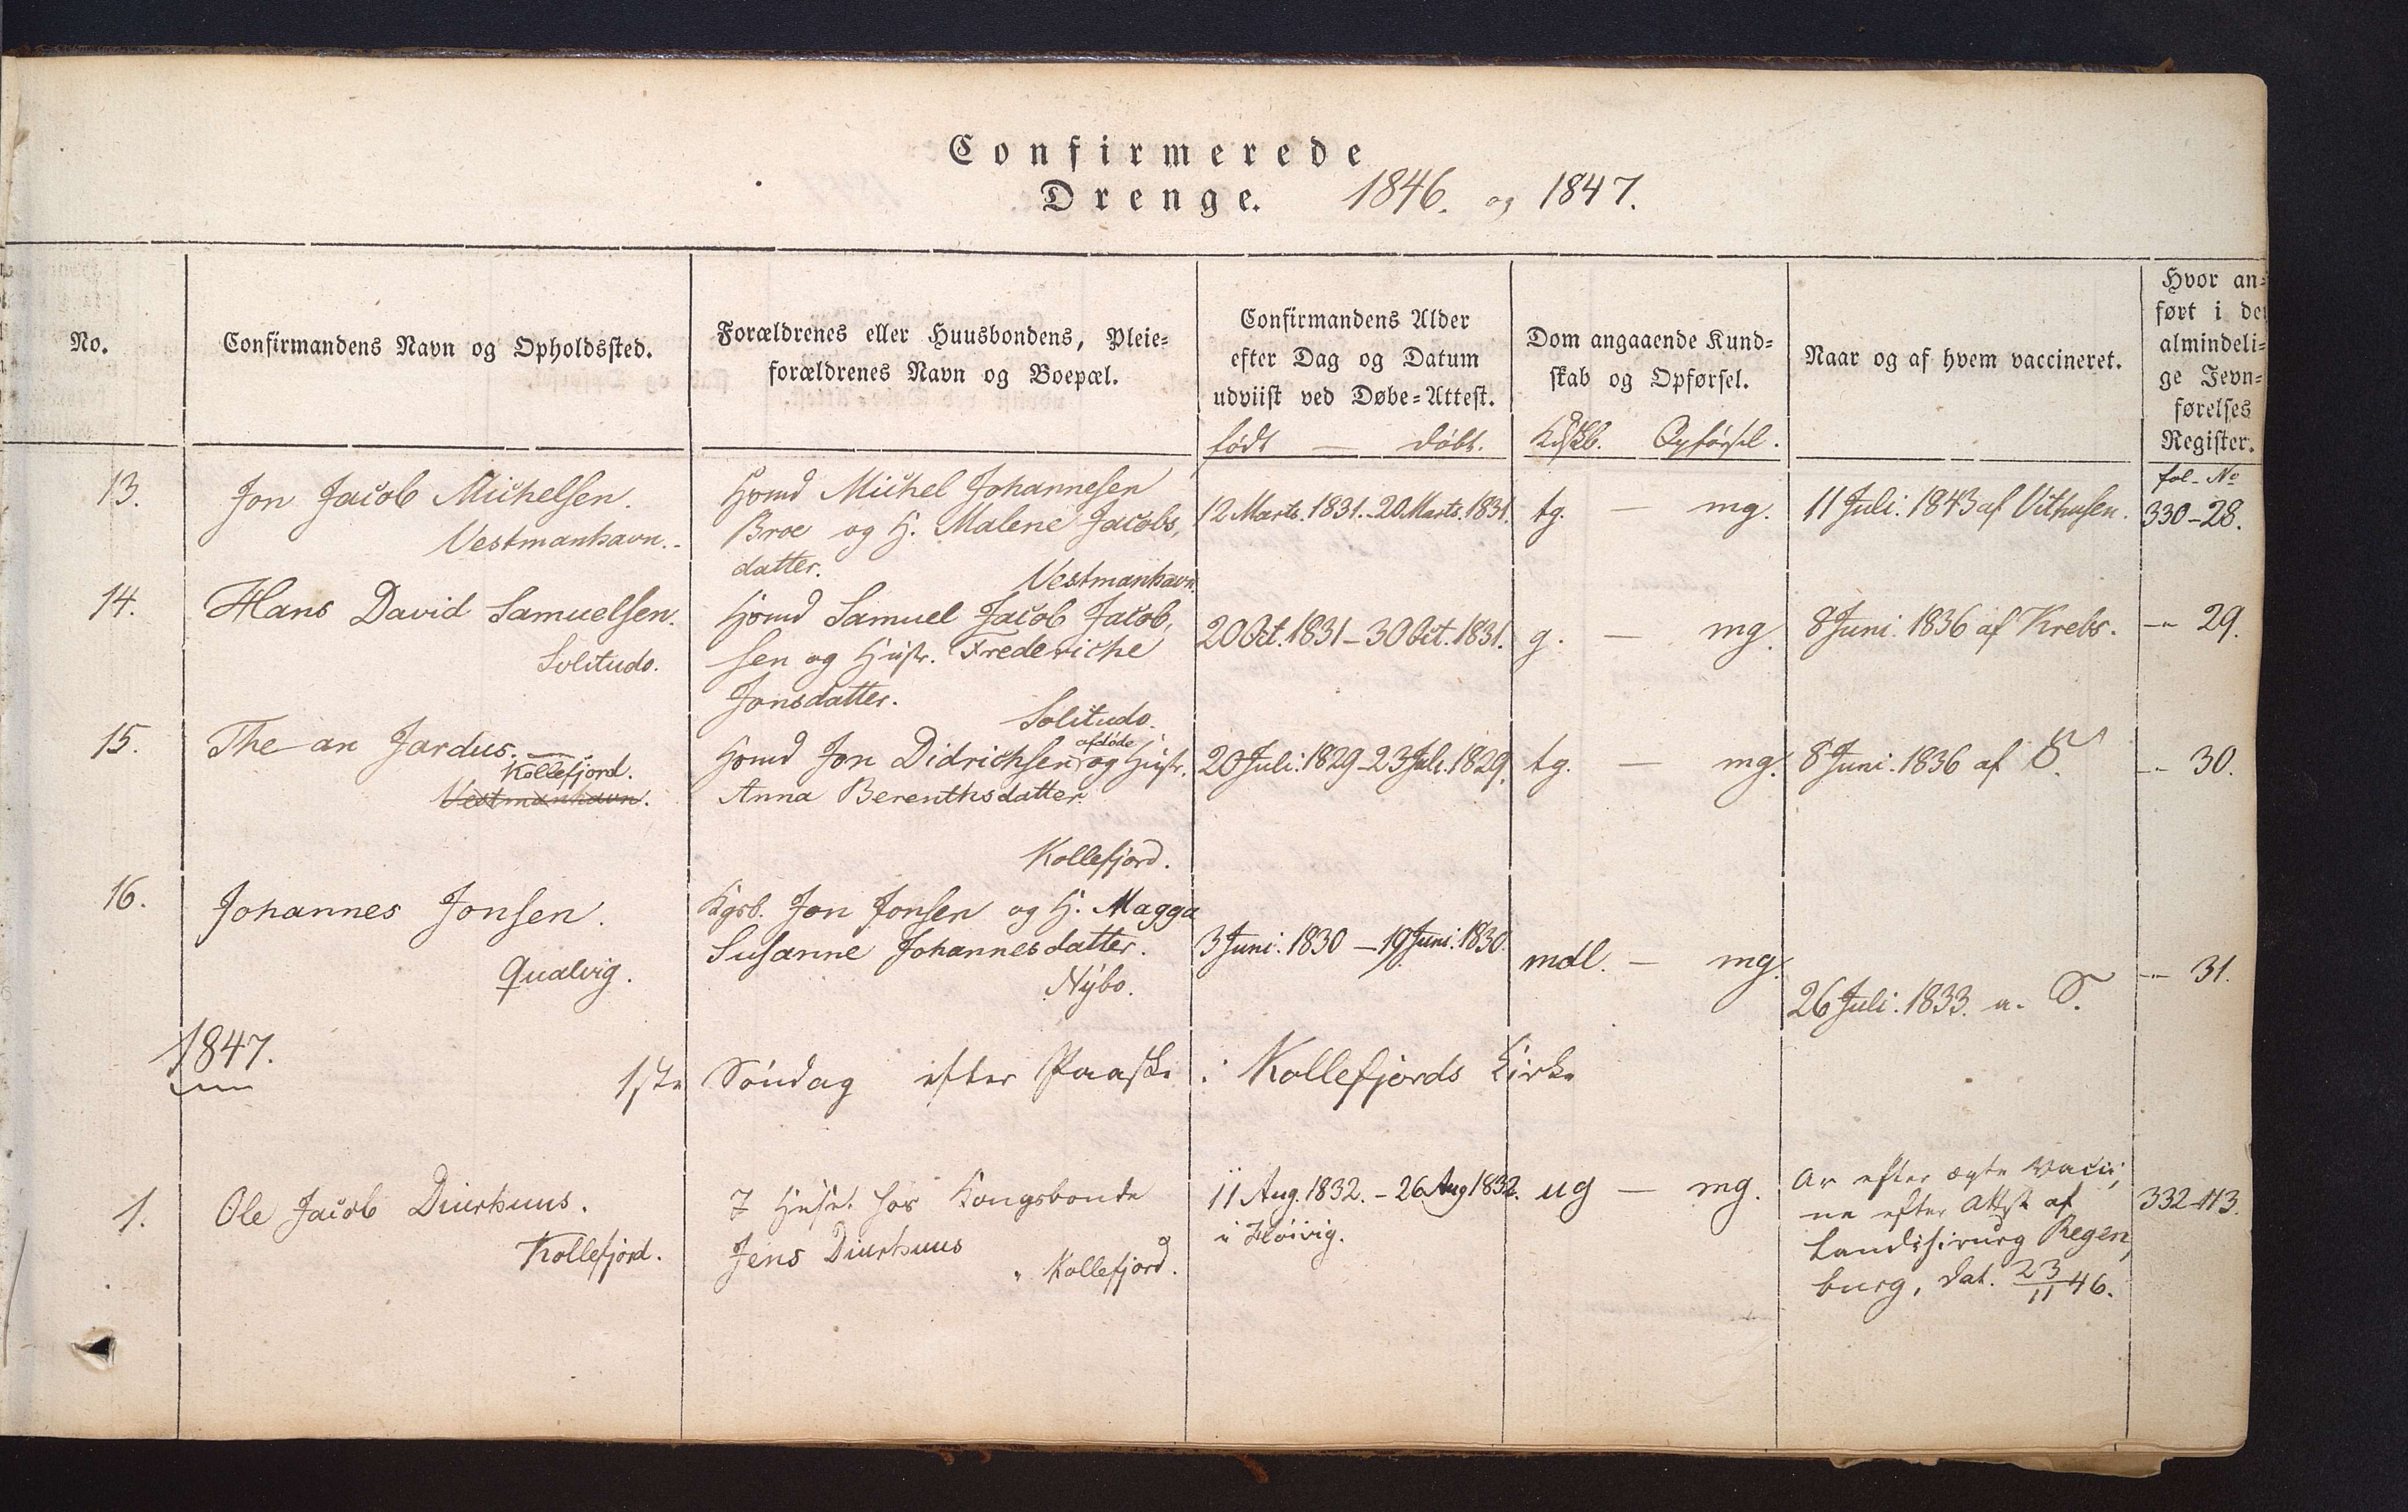 Confirmerede
Drenge. 1846. og 1847.
No.
Confirmandens Navn og Opholdssted.
Forældrenes eller Huusbondens, Pleie-
forældrenes Navn og Boepæl.
Confirmandens Alder
efter Dag og Datum
udviist ved Døbe-Attest.
født — døbt.
Dom angaaende Kund-
skab og Opførsel.
Kdskb. Opførsel.
Naar og af hvem vaccineret.
Hvor an-
ført i de
almindeli-
ge Jevn-
førelses
Register.
fol - No
13.
Jon Jacob Michelsen.
Vestmanhavn.
Hsmd Michel Johannesen
Broe og H. Malene Jacobs,
datter.
Vestmanhavn.
12 Marts. 1831. - 20 Marts. 1831.
tg. — mg.
11 Juli. 1843 af Vithusen.
330 - 28.
14.
Hans David Samuelsen.
Solitudo.
Hsmd Samuel Jacob Jacob,
sen og Hustr. Frederiche
Jonsdatter.
Solitudo.
20 Oct. 1831 - 30 Oct. 1831.
g. — mg.
8 Juni. 1836 af Krebs.
-"- 29.
15.
The an Jardus.
Kollefjord.
Vestmanhavn.
Hsmd Jon Didrichsen og afdøde Hustr.
Anna Berenthsdatter.
Kollefjord.
20 Juli. 1829 - 23 Juli. 1829.
tg. — mg.
8 Juni. 1836 af S.
-"- 30.
16.
Johannes Jonsen.
Qualvig.
Kgsb. Jon Jonsen og H. Magga
Susanne Johannesdatter.
Nybo.
3 Juni. 1830 - 19 Juni. 1830.
mdl. — mg.
26 Juli. 1833. a. S.
-"- 31.
1847.
1ste Søndag efter Paaske i Kollefjords Kirke
1.
Ole Jacob Diurhuus.
Kollefjord.
I Huset hos Kongsbonde
Jens Diurhuus
Kollefjord.
11 Aug. 1832. - 26 Aug 1832.
i Høivig.
ug — mg.
Ar efter ægte Vacci,
ne efter Attst af
Landchirurg Regen,
burg, dat. 23/11 46.
332 - 113.